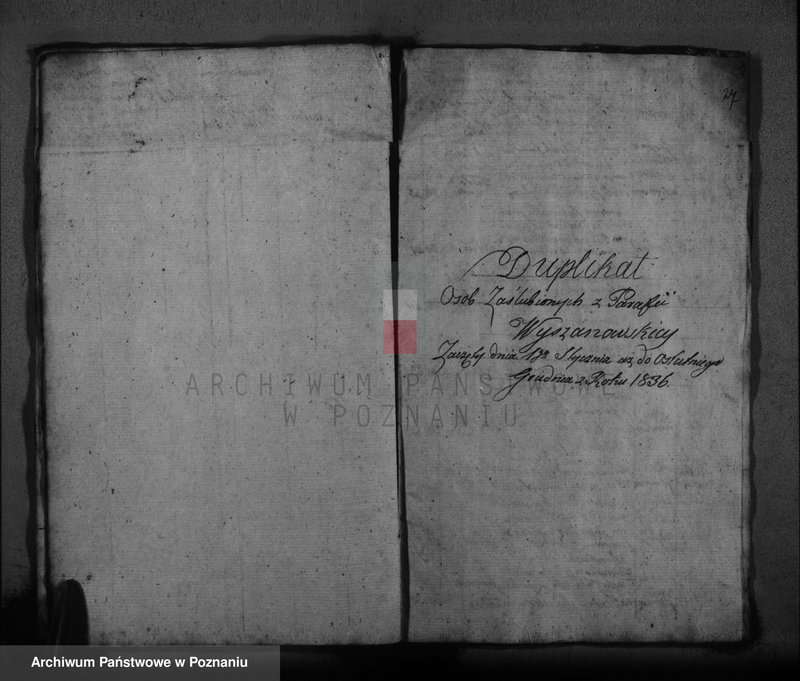 27
Duplikat
Osob Zaślubionych z Parafii
Wyszanowskiey
Zaczęty dnia Stycznia aż do Ostatniego
Grudnia z Roku 1836.
ARCHIWUM PAŃSTWOWE
W POZNANIU
Archiwum Państwowe w Poznaniu